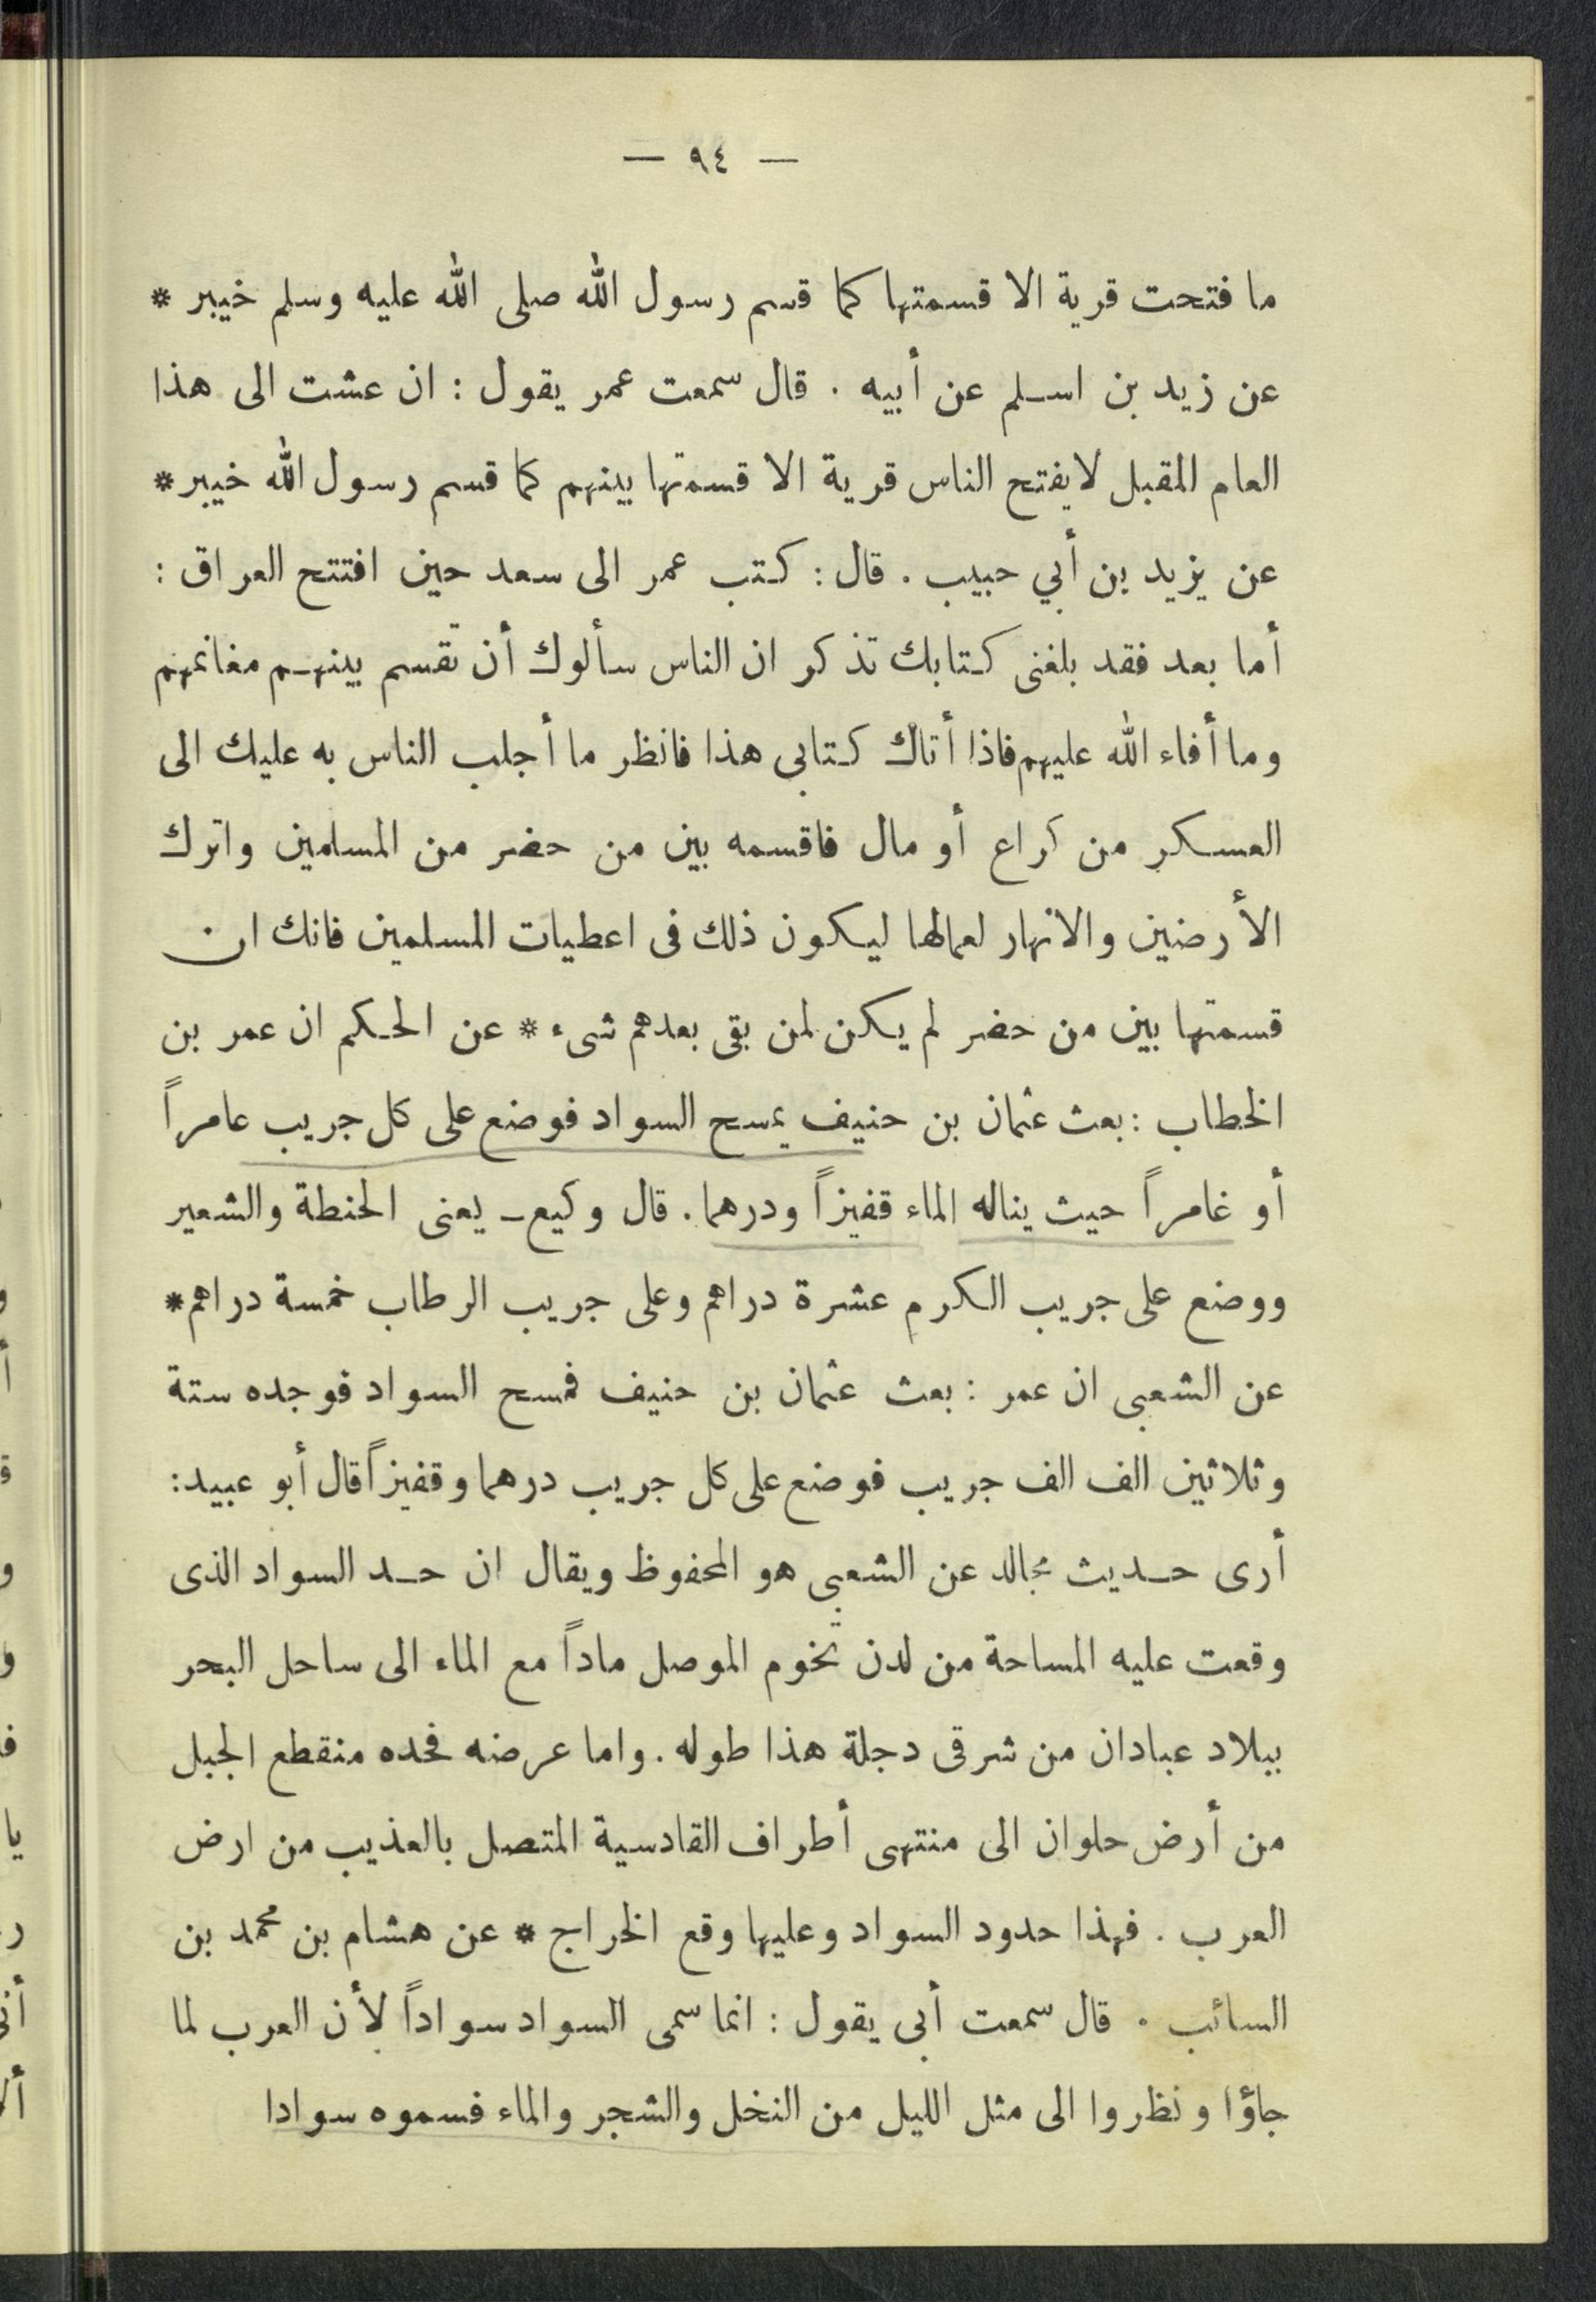 — ٩٤ —
ما فتحت قرية الا قسمتها كما قسم رسول الله صلى الله عليه وسلم خيبر *
عن زيد بن اسلم عن أبيه . قال سمعت عمر يقول : ان عشت الى هذا
العام المقبل لايفتح الناس قرية الا قسمتها بينهم كما قسم رسول الله خيبر *
عن يزيد بن أبي حبيب . قال : كتب عمر الى سعد حين افتتح العراق :
أما بعد فقد بلغنى كتابك تذكر ان الناس سألوك أن تقسم بينهم مغانمهم
وما أفاء الله عليهم فاذا أتاك كتابى هذا فانظر ما أجلب الناس به عليك الى
العسكر من كراع أو مال فاقسمه بين من حضر من المسلمين واترك
الأرضين والانهار لعمالها ليكون ذلك فى اعطيات المسلمين فانك ان
قسمتها بين من حضر لم يكن لمن بقى بعدهم شىء * عن الحكم ان عمر بن
الخطاب : بعث عثمان بن حنيف يمسح السواد فوضع على كل جريب عامراً
أو غامراً حيث يناله الماء قفيزاً ودرهما . قال وكيع ـ يعنى الحنطة والشعير
ووضع على جريب الكرم عشرة دراهم وعلى جريب الرطاب خمسة دراهم *
عن الشعبى ان عمر : بعث عثمان بن حنيف فمسح السواد فوجده ستة
وثلاثين الف الف جريب فوضع على كل جريب درهما وقفيزاً قال أبو عبيد :
أرى حديث مجالد عن الشعبى هو المحفوظ ويقال ان حد السواد الذى
وقعت عليه المساحة من لدن تخوم الموصل ماداً مع الماء الى ساحل البحر
ببلاد عبادان من شرقى دجلة هذا طوله . واما عرضه فحده منقطع الجبل
من أرض حلوان الى منتهى أطراف القادسية المتصل بالعذيب من ارض
العرب . فهذا حدود السواد وعليها وقع الخراج * عن هشام بن محمد بن
السائب . قال سمعت أبى يقول : انما سمى السواد سواداً لأن العرب لما
جاؤا ونظروا الى مثل الليل من النخل والشجر والماء فسموه سوادا